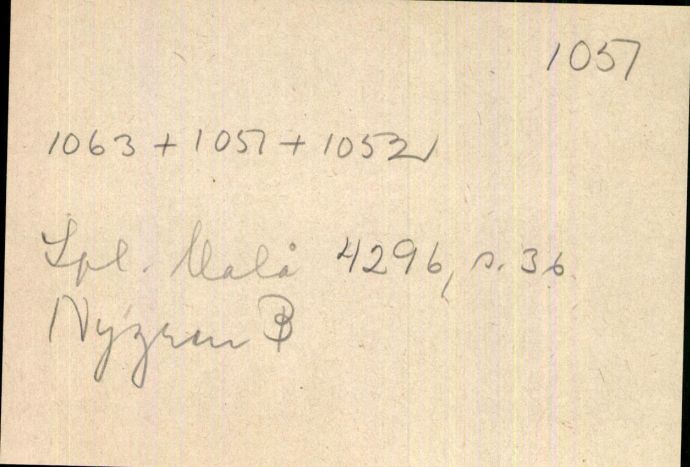 1057
1063 + 1057 + 1052
Lpl. Malå 4296, s. 36
B